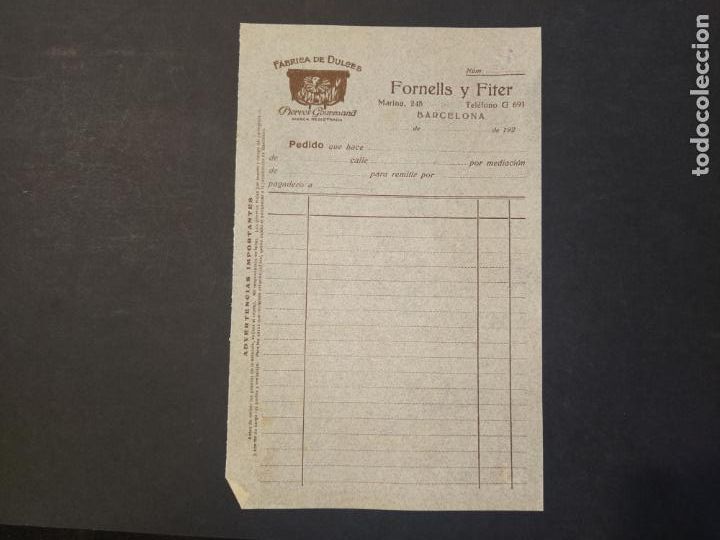 FÁBRICA DE DULCES
Pierrot Gourmand
MARCA REGISTRADA
Núm.
Fornells y Fiter
Marina, 248 Teléfono G 691
BARCELONA
de de 192
Pedido que hace
de calle por mediación
de para remitir por
pagadero a
ADVERTENCIAS IMPORTANTES
todocoleccion